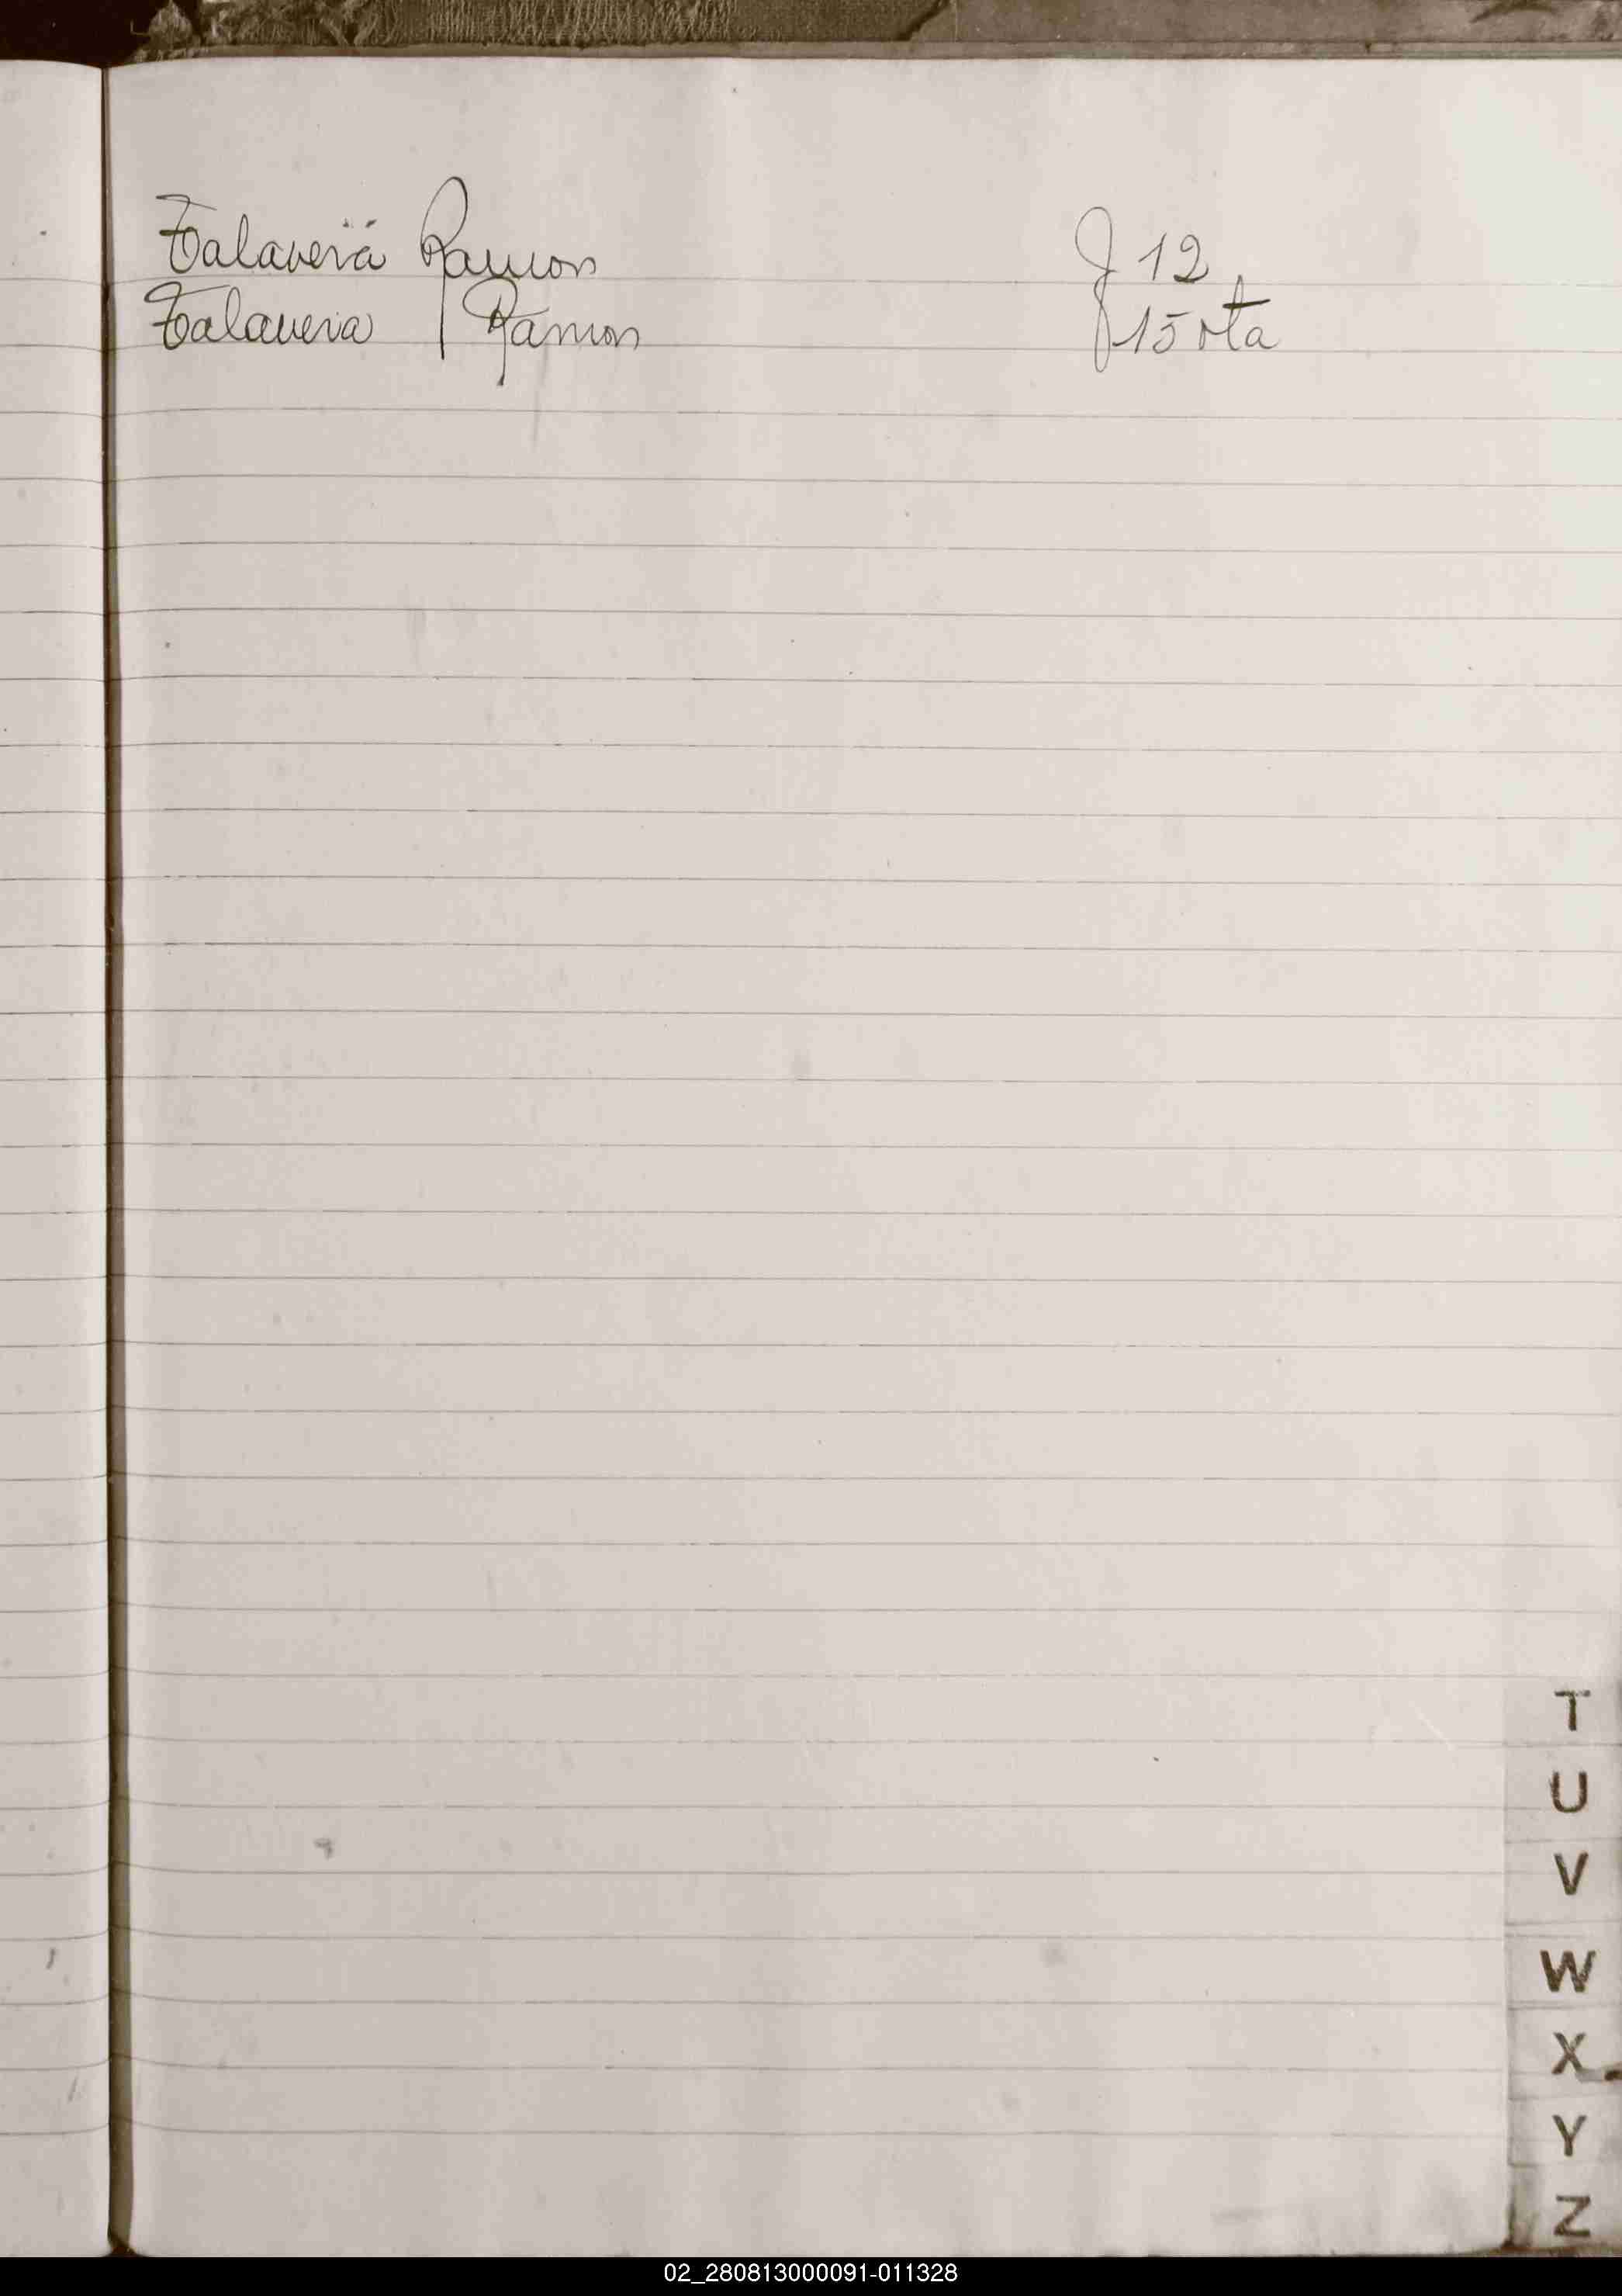 Talavera Ramon f 12
Talavera Ramon f 15 vta
T
U
V
W
X
Y
Z
02_280813000091-011328